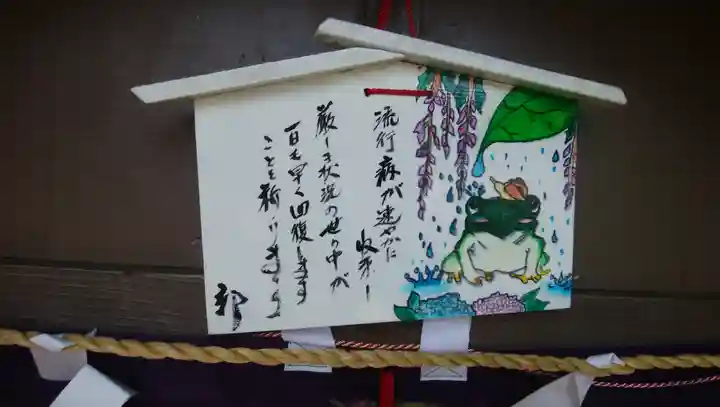 流行病が速やかに
収束し
厳しき状況の世の中が
一日も早く回復しますよう
ことを祈ります